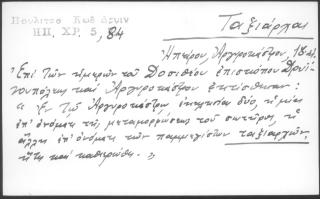 Πουλίτσα Κωδ Δρυιν
ΗΠ, ΧΡ. 5, 84
Ταξιάρχαι
Ηπείρου, Αργυροκάστρου, 18
Επί των ημερών του Δοσιθέου επισκόπου Δρυϊ-
νουπόλεως και Αργυροκάστρου εκτίσθησαν:
« Εν τω Αργυροκάστρω εκκλησίαι δύο, η μία
επ' ονόματι της μεταμορφώσεως του σωτήρος, η
άλλη επ' ονόματι των παμμεγίστων ταξιαρχών,
και